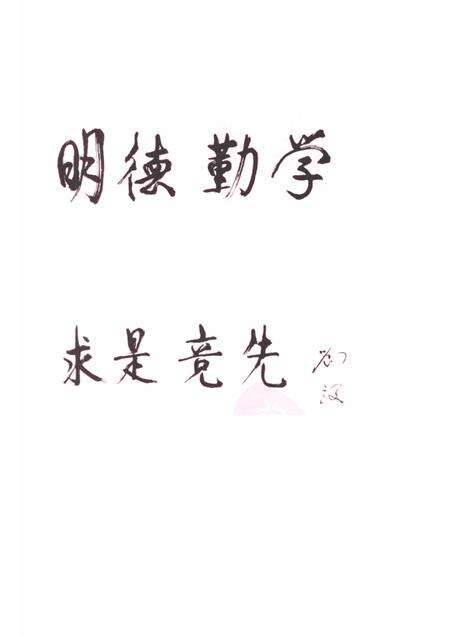 明德勤学
求是竞先